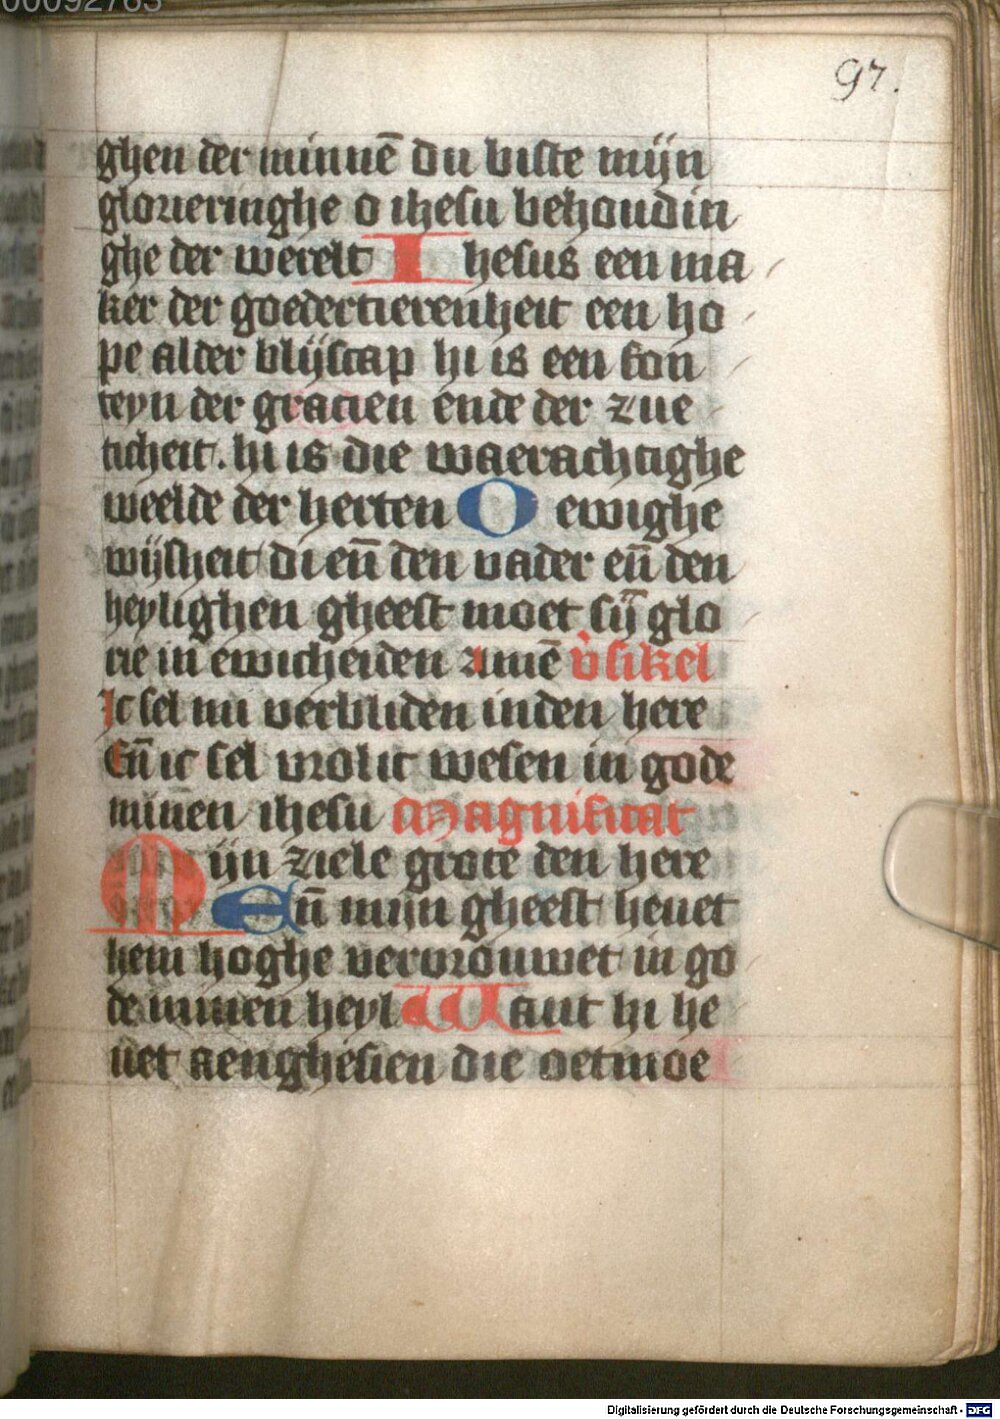 00092763
97.
ghen der minnē du biste mijn
glorieringhe o ihesu behoudin
ghe der werelt Ihesus een ma
ker der goedertierenheit een ho
pe alder blijscap hi is een fon
teyn der gracien ende der zue
ticheit. hi is die waerachtighe
weelde der herten O ewighe
wijsheit di eñ den vader eñ den
heylighen gheest moet sij̄ glo
rie in ewicheiden amē v̉sikel
Ic sel mi verbliden inden here
Eñ ic sel vrolic wesen in gode
minen ihesu Magnificat
Mijn ziele grote den here
Eñ mijn gheest heuet
hem hoghe vervrouwet in go
de minen heyl Want hi he
uet aenghesien die oetmoe
Digitalisierung gefördert durch die Deutsche Forschungsgemeinschaft - DFG